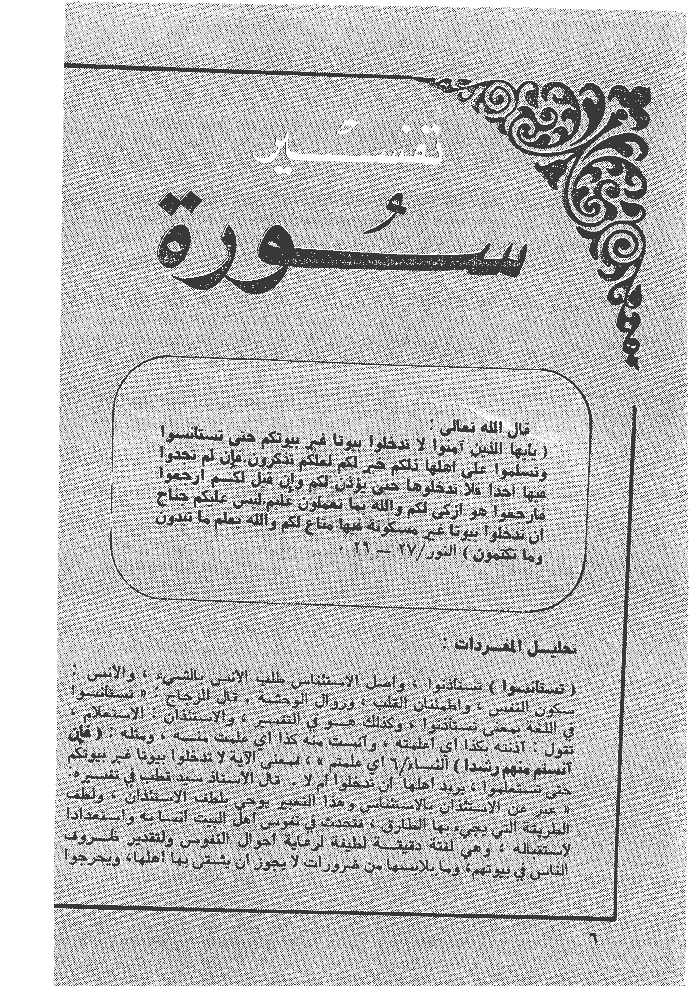 تفسير
سورة
قال الله تعالى :
( يأيها الذين آمنوا لا تدخلوا بيوتا غير بيوتكم حتى تستأنسوا
وتسلموا على أهلها ذلكم خير لكم لعلكم تذكرون فإن لم تجدوا
فيها أحدا فلا تدخلوها حتى يؤذن لكم وإن قيل لكم ارجعوا
فارجعوا هو أزكى لكم والله بما تعملون عليم ليس عليكم جناح
أن تدخلوا بيوتا غير مسكونة فيها متاع لكم والله يعلم ما تبدون
وما تكتمون ) النور/٢٧ — ٢٩ .
تحليل المفردات :
( تستأنسوا ) تستأذنوا ، وأصل الاستئناس طلب الأنس بالشيء ، والأنس :
سكون النفس ، واطمئنان القلب ، وزوال الوحشة . قال الزجاج : « تستأنسوا
في اللغة بمعنى تستأذنوا ، وكذلك هو في التفسير ، والاستئذان : الاستعلام ،
تقول : آذنته بكذا أي أعلمته ، وآنست منه كذا أي علمت منه ، ومثله : ( فإن
آنستم منهم رشدا ) النساء/٦ أي علمتم » ، فمعنى الآية لا تدخلوا بيوتا غير بيوتكم
حتى تستعلموا ، يريد أهلها أن تدخلوا أم لا . قال الأستاذ سيد قطب في تفسيره.
« عبر عن الاستئذان بالاستئناس وهذا التعبير يوحي بلطف الاستئذان ، ولطف
الطريقة التي يجيء بها الطارق ، فتحدث في نفوس أهل البيت أنسا به واستعدادا
لاستقباله ، وهي لفتة دقيقة لطيفة لرعاية أحوال النفوس ولتقدير ظروف
الناس في بيوتهم، وما يلابسها من ضرورات لا يجوز أن يشقى بها أهلها، ويحرجوا
٦